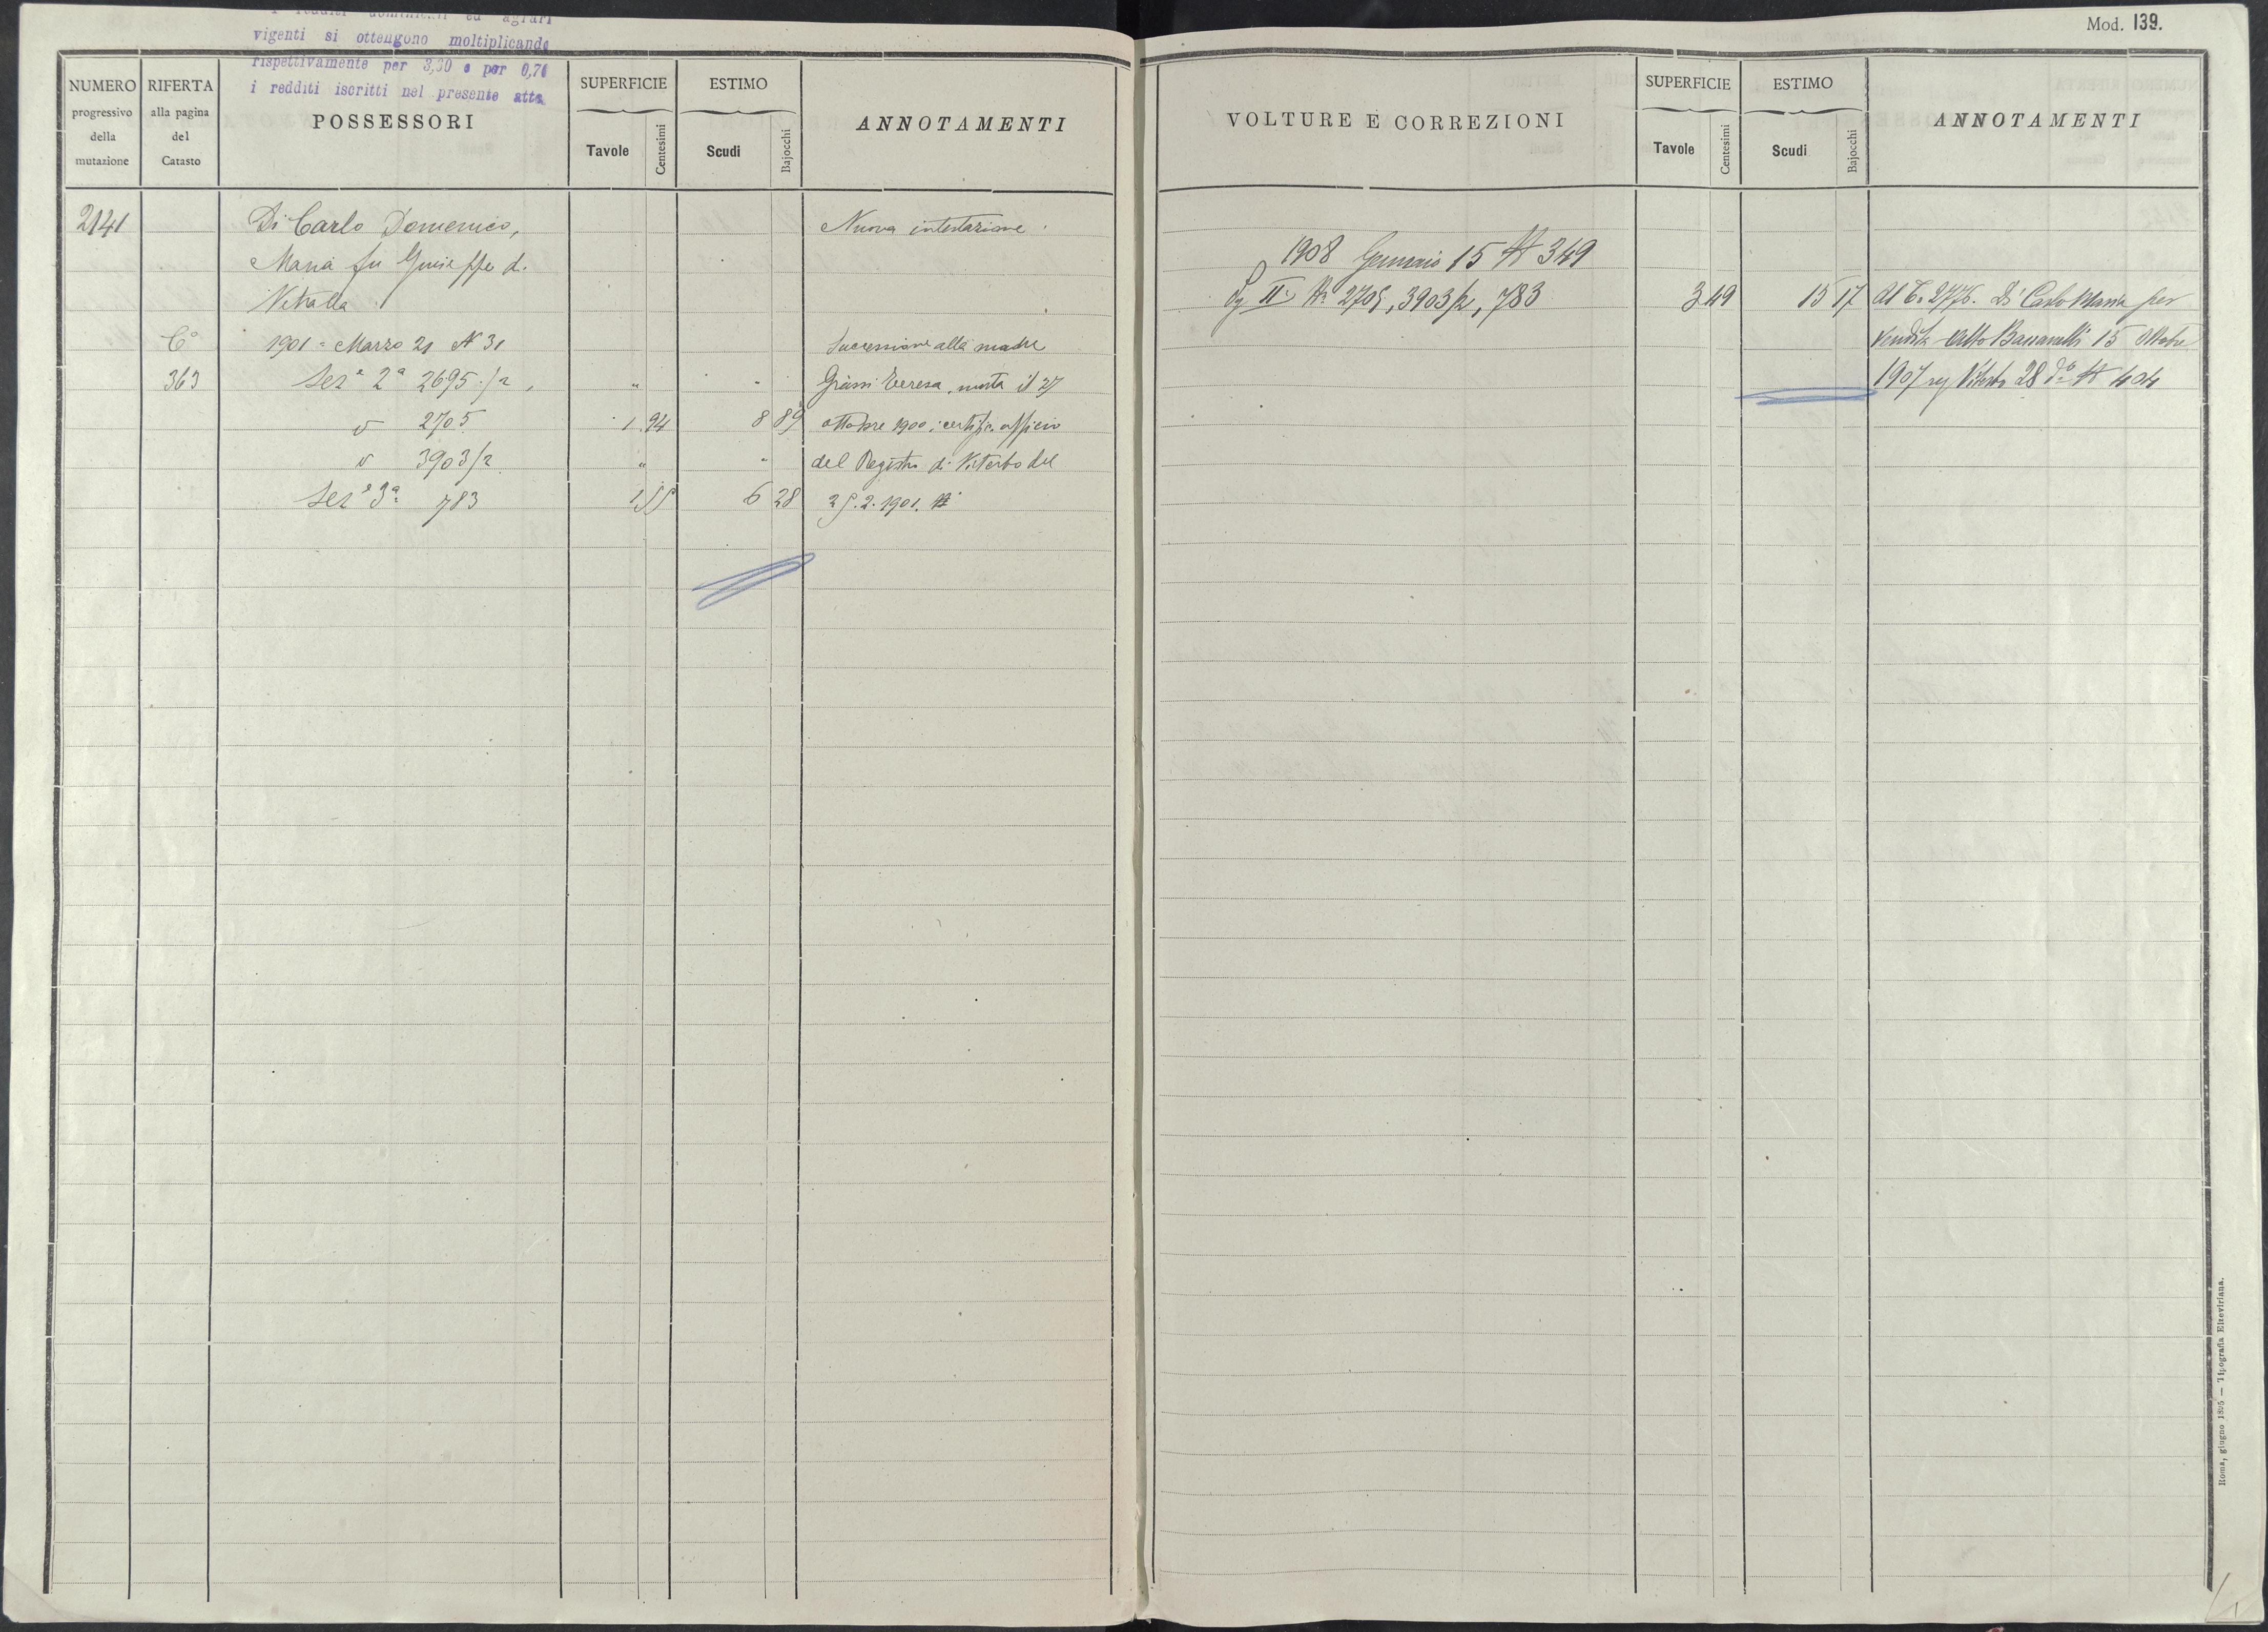 vigenti si ottengono moltiplicando
rispettivamente per 3,30 e per 0,70
i redditi iscritti nel presente atto
NUMERO progressivo della mutazione
RIFERTA alla pagina del Catasto
POSSESSORI
SUPERFICIE
Tavole Centesimi
ESTIMO
Scudi Bajocchi
ANNOTAMENTI
2141 Di Carlo Domenico, Nuova intestazione
Maria fu Giuseppe di
Vetralla
C° 1901 = Marzo 21 N 31 Successione alla madre
363 Sez.e 2a 2695/2 " " Grassi Teresa, morta il 27
" 2705 1 94 8 89 ottobre 1900; certific. officio
" 3903/2 " " del Registro di Viterbo del
Sez.e 3a 783 1 55 6 28 25.2.1901.
Mod. 139.
VOLTURE E CORREZIONI
SUPERFICIE
Tavole Centesimi
ESTIMO
Scudi Bajocchi
ANNOTAMENTI
1908 Gennaio 15 N 349
II N. 2705, 3903/2, 783 3 49 15 17 Al C. 2776. Di Carlo Maria per
vendita atto 15 Ottobre
1907 reg Viterbo 28 do N 404
Roma, giugno 1895 — Tipografia Elzeviriana.